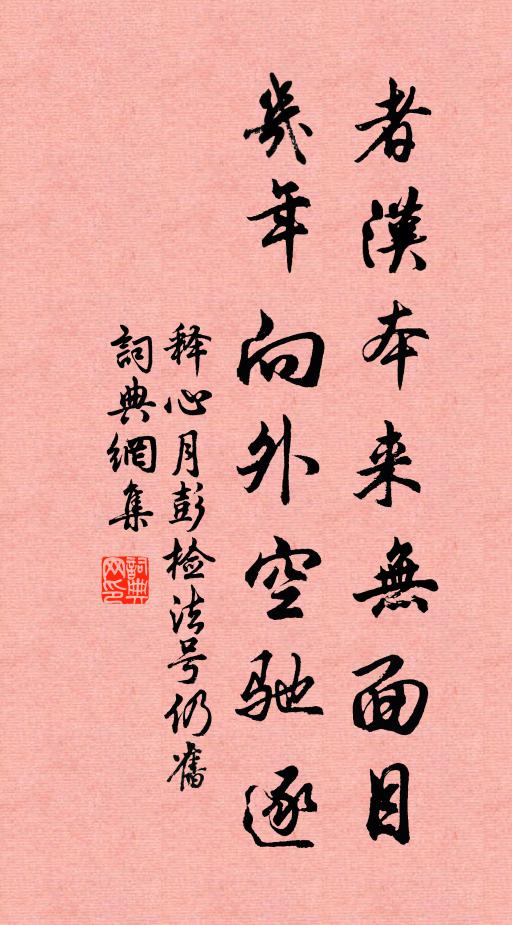 者漢本来無面目
幾年向外空馳逐
释心月彭检法号仍舊
詞典網集
詞典网印